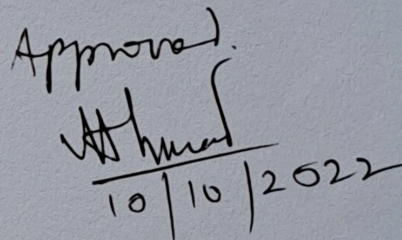 Approved.
10/10/2022